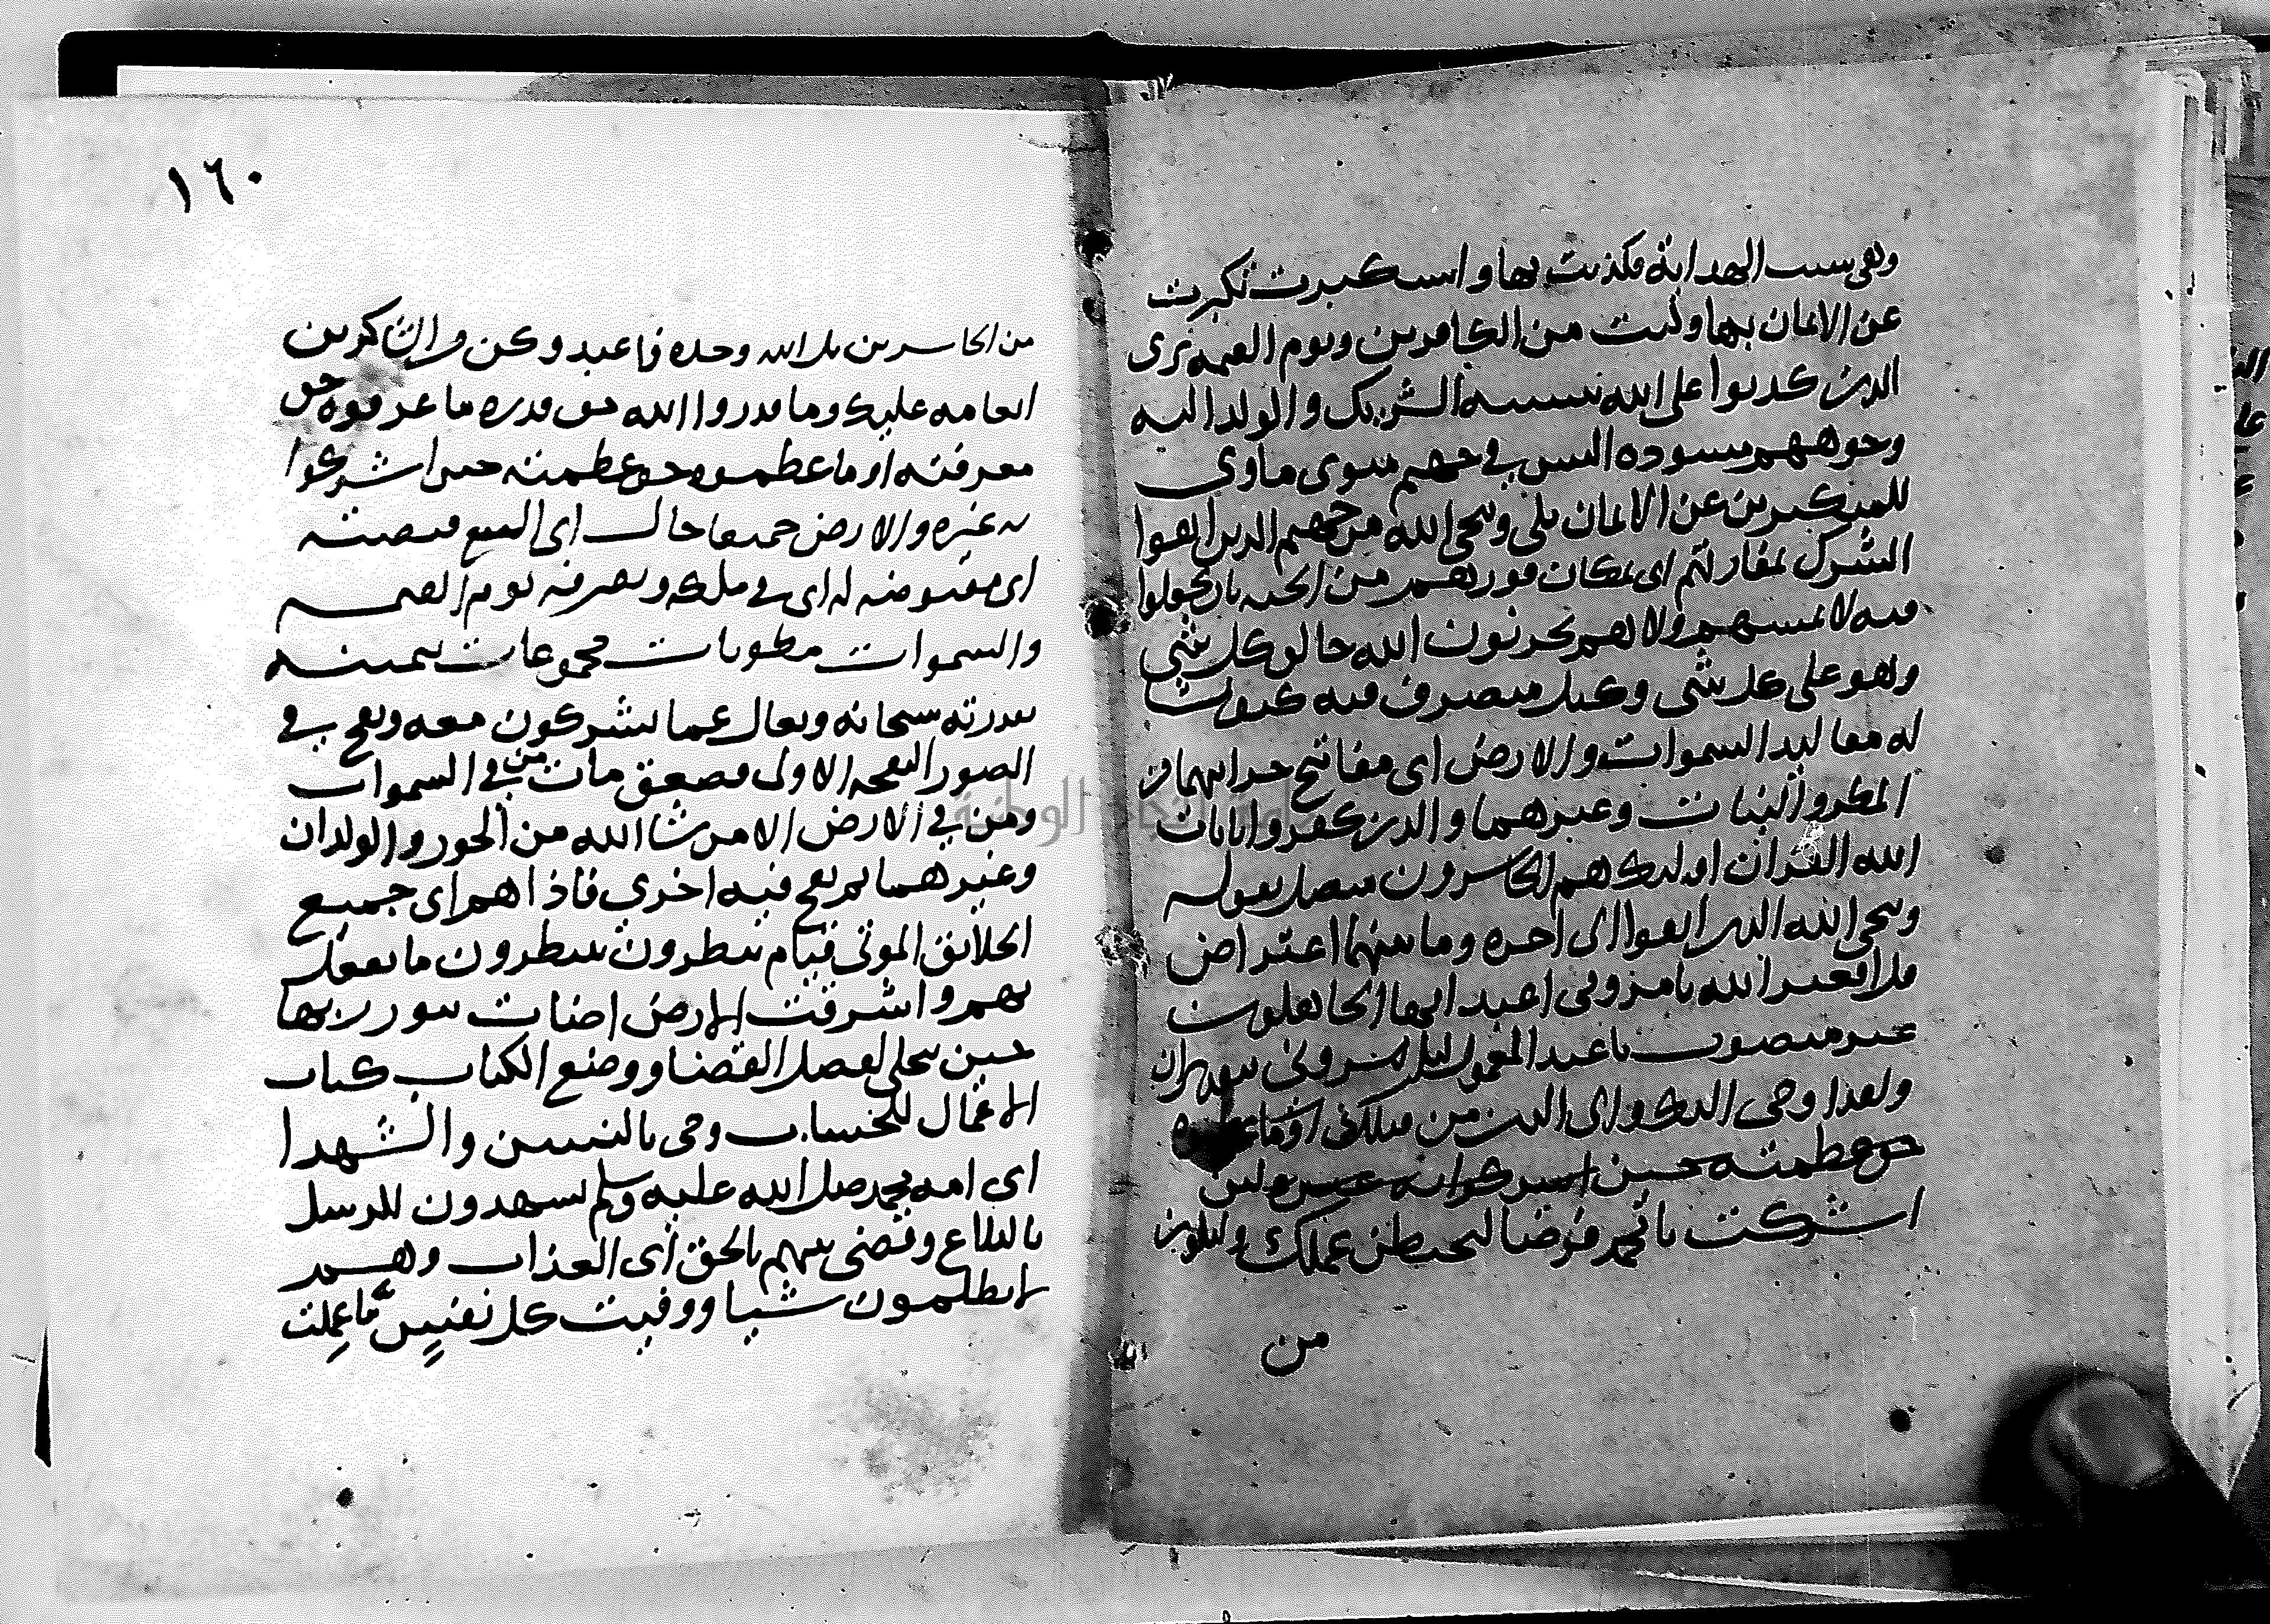 وهي سبب الهداية فكذبت بها واستكبرت تكبرت
عن الايمان بها وكنت من الكافرين ويوم القيمة ترى
الذين كذبوا على الله بنسبة الشريك والولد اليه
وجوههم مسودة اليس في جهنم مثوى ماوى
للمتكبرين عن الايمان بلى وينجي الله من جهنم الذين اتقوا
الشرك بمفازتهم اى بمكان فوزهم من الجنة بان يجعلوا
فيه لا يمسهم ولا هم يحزنون الله خالق كل شي
وهو على كل شى وكيل متصرف فيه كيف يشا
له مقاليد السموات والارض اى مفاتيح خزاينهما من
المطر والنبات وغيرهما والذين كفروا بايات
الله القران اوليك هم الخاسرون متصل بقوله
وينجي الله الذين اتقوا الى اخره وما بينهما اعتراض
قل افغير الله تامروني اعبد ايها الجاهلون
غير منصوب باعبد المعمول لتامروني بتقدير ان
ولقد اوحى اليك والى الذين من قبلك
حق عظمته حين اشركوا به غيره لين
اشركت يا محمد فرضا ليحبطن عملك ولتكونن
من
١٦٠
من الخاسرين بل الله وحده فاعبد وكن من الشاكرين
انعامه عليك وما قدروا الله حق قدره ما عرفوه حق
معرفته او ما عظموه حق عظمته حين اشركوا
به غيره والارض جميعا حال اى السبع قبضته
اى مقبوضة له اى في ملكه وتصرفه يوم القيمه
والسموات مطويات مجموعات بيمينه
بقدرته سبحانه وتعالى عما يشركون معه ونفخ في
الصور النفخه الاولى فصعق مات من في السموات
ومن في الارض الا من شا الله من الحور والولدان
وغيرهما ثم نفخ فيه اخرى فاذا هم اى جميع
الخلائق الموتى قيام ينظرون ينظرون ما يفعل
بهم واشرقت الارض اضات بنور ربها
حين يتجلى لفصل القضا ووضع الكتاب كتاب
الاعمال للحساب وجى بالنبيين والشهدا
اى امه محمد صلى الله عليه وسلم يشهدون للرسل
بالبلاغ وقضى بينهم بالحق اى العذاب وهم
لا يظلمون شيا ووفيت كل نفس ما عملت